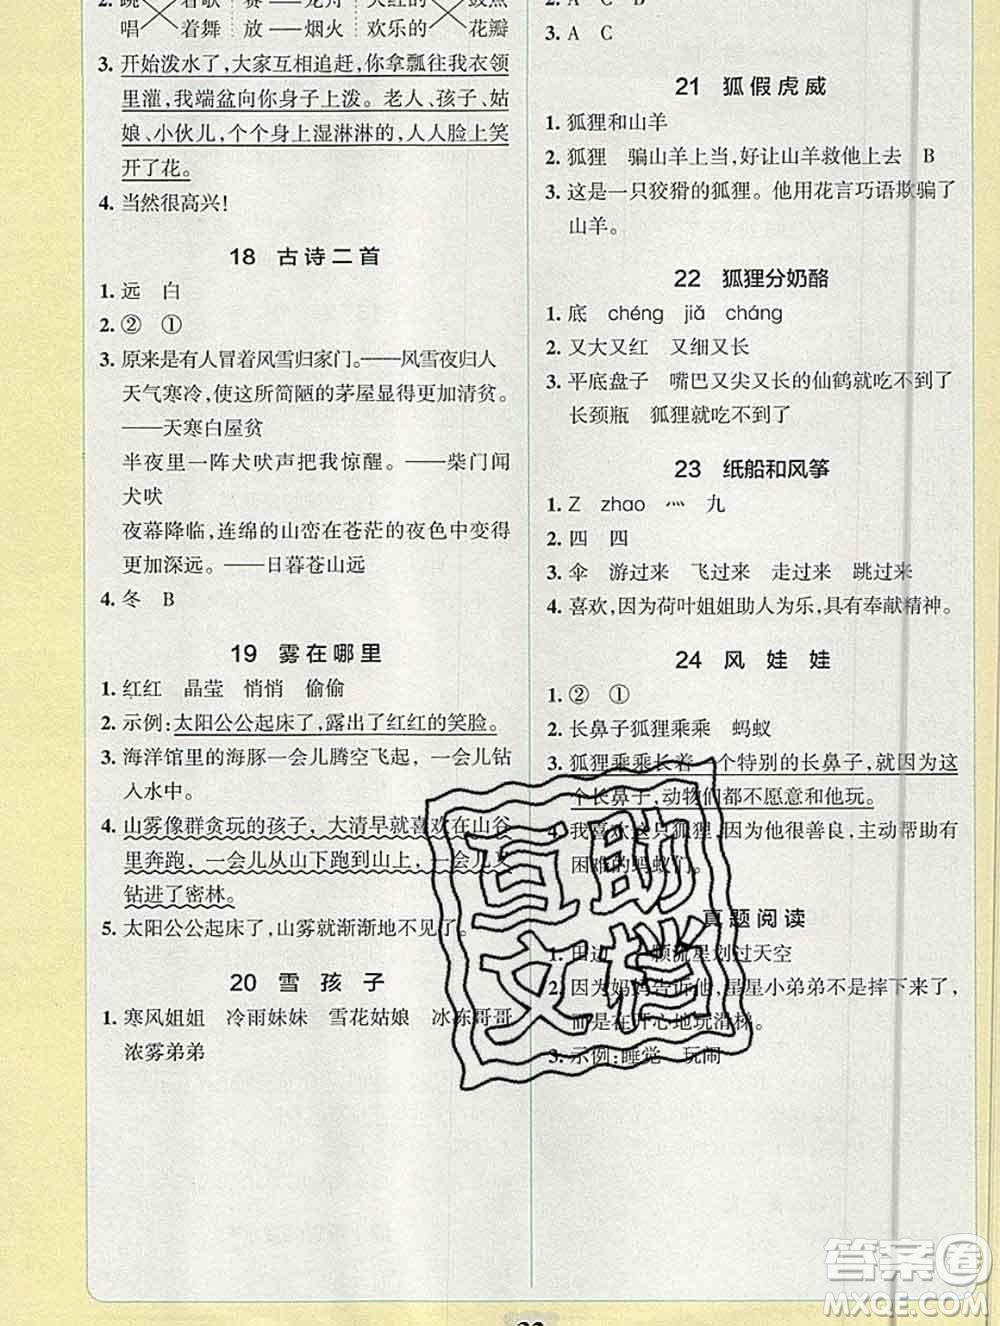 2. 跳 着歌 赛 — 龙舟 大红的 鼓点
唱 着舞 放 — 烟火 欢乐的 花瓣
3. 开始泼水了,大家互相追赶,你拿瓢往我衣领
里灌,我端盆向你身子上泼。老人、孩子、姑
娘、小伙儿,个个身上湿淋淋的,人人脸上笑
开了花。
4. 当然很高兴!
18 古诗二首
1. 远 白
2. ② ①
3. 原来是有人冒着风雪归家门。——风雪夜归人
天气寒冷,使这所简陋的茅屋显得更加清贫。
——天寒白屋贫
半夜里一阵犬吠声把我惊醒。——柴门闻
犬吠
夜幕降临,连绵的山峦在苍茫的夜色中变得
更加深远。——日暮苍山远
4. 冬 B
19 雾在哪里
1. 红红 晶莹 悄悄 偷偷
2. 示例:太阳公公起床了,露出了红红的笑脸。
3. 海洋馆里的海豚一会儿腾空飞起,一会儿钻
入水中。
4. 山雾像群贪玩的孩子,大清早就喜欢在山谷
里奔跑,一会儿从山下跑到山上,一会儿又
钻进了密林。
5. 太阳公公起床了,山雾就渐渐地不见了。
20 雪孩子
1. 寒风姐姐 冷雨妹妹 雪花姑娘 冰冻哥哥
浓雾弟弟
2. A C B
3. A C
21 狐假虎威
1. 狐狸和山羊
2. 狐狸 骗山羊上当,好让山羊救他上去 B
3. 这是一只狡猾的狐狸。他用花言巧语欺骗了
山羊。
22 狐狸分奶酪
1. 底 chéng jiǎ cháng
2. 又大又红 又细又长
3. 平底盘子 嘴巴又尖又长的仙鹤就吃不到了
长颈瓶 狐狸就吃不到了
23 纸船和风筝
1. Z zhao 灬 九
2. 四 四
3. 伞 游过来 飞过来 走过来 跳过来
4. 喜欢,因为荷叶姐姐助人为乐,具有奉献精神。
24 风娃娃
1. ② ①
2. 长鼻子狐狸乖乖 蚂蚁
3. 狐狸乖乖长着一个特别的长鼻子,就因为这
个长鼻子,动物们都不愿意和他玩。
4. 我喜欢这只狐狸,因为他很善良,主动帮助有
困难的蚂蚁们。
真题阅读
1. 田边 一颗流星划过天空
2. 因为妈妈告诉他,星星小弟弟不是摔下来了,
而是在开心地玩滑梯。
3. 示例:睡觉 玩闹
互助
文档
答案圈
MXQE.COM